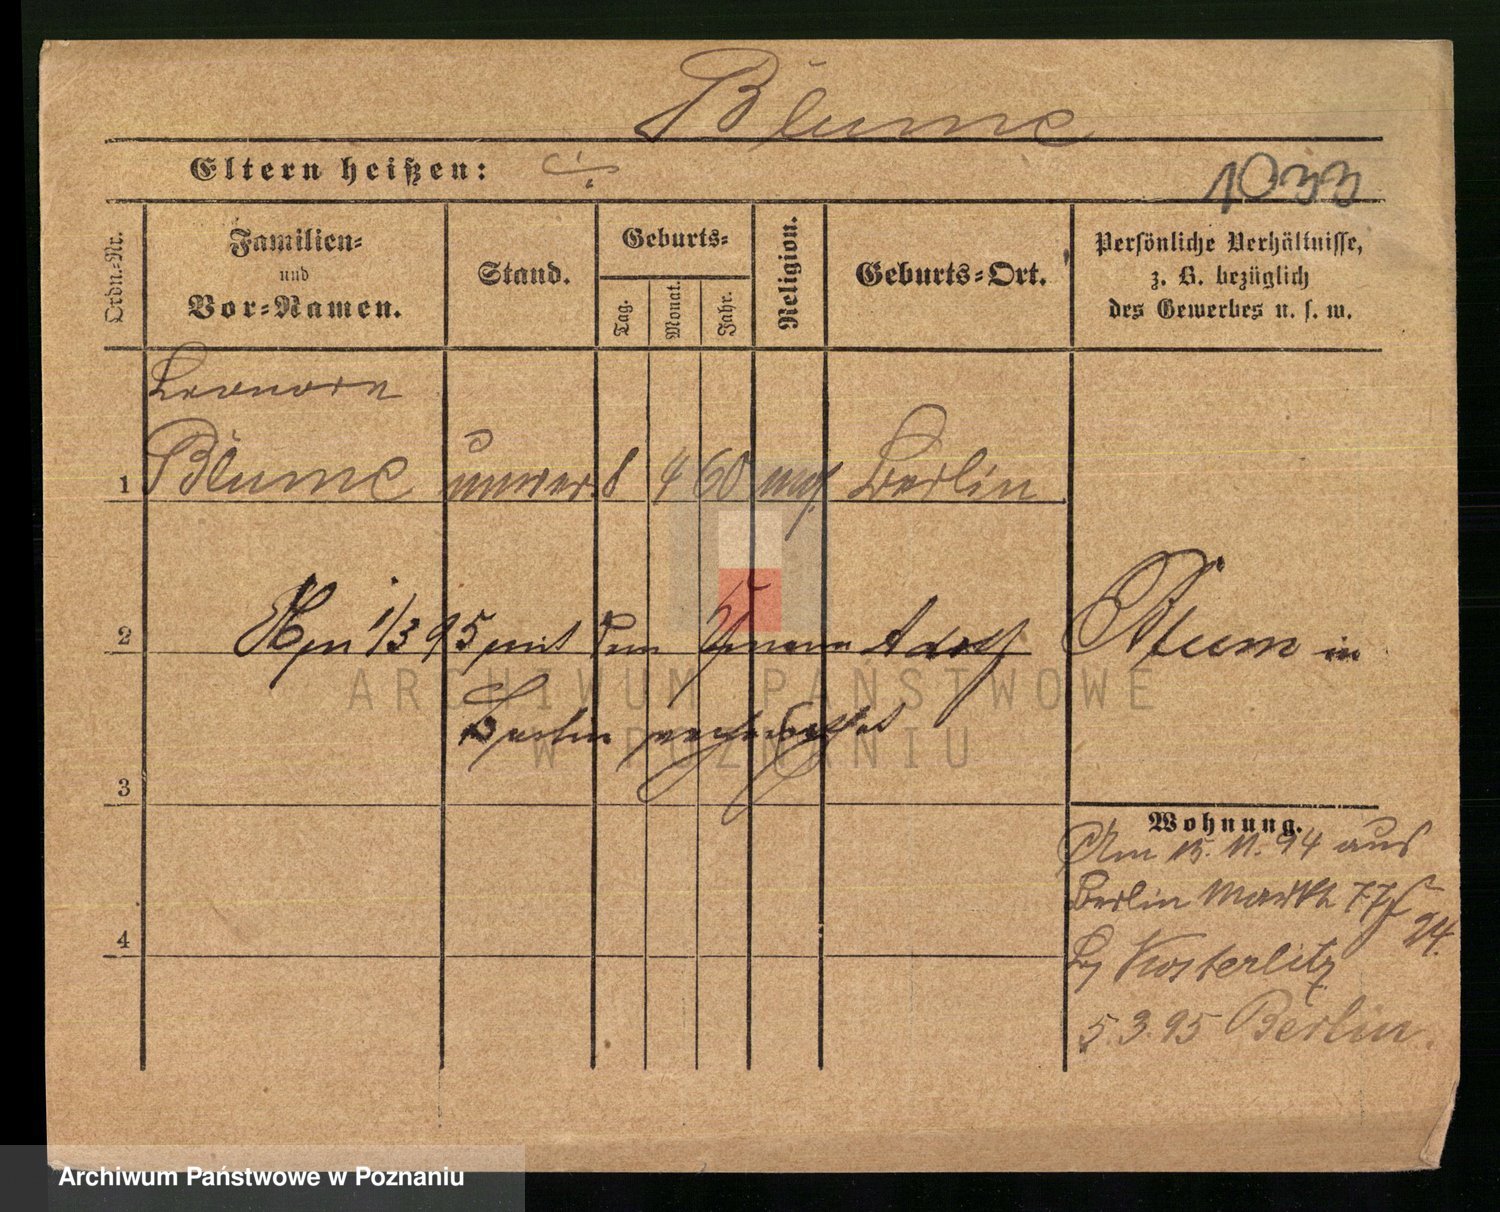 Blume
Eltern heißen:
1033
Ordn.-Nr.
Familien-
und
Vor-Namen.
Stand.
Geburts-
Tag.
Monat.
Jahr.
Religion.
Geburts-Ort.
Persönliche Verhältnisse,
z. B. bezüglich
des Gewerbes u. s. w.
Leonore
1 Blume unver. 8 4 60 Berlin
2 1/3 95 mit dem Adolf Blum in
Berlin
3
Wohnung.
Am 15. 11. 94 aus
Berlin Markt 77
94.
4
Bz Kosterlitz
5.3.95 Berlin.
ARCHIWUM PAŃSTWOWE
W POZNANIU
Archiwum Państwowe w Poznaniu